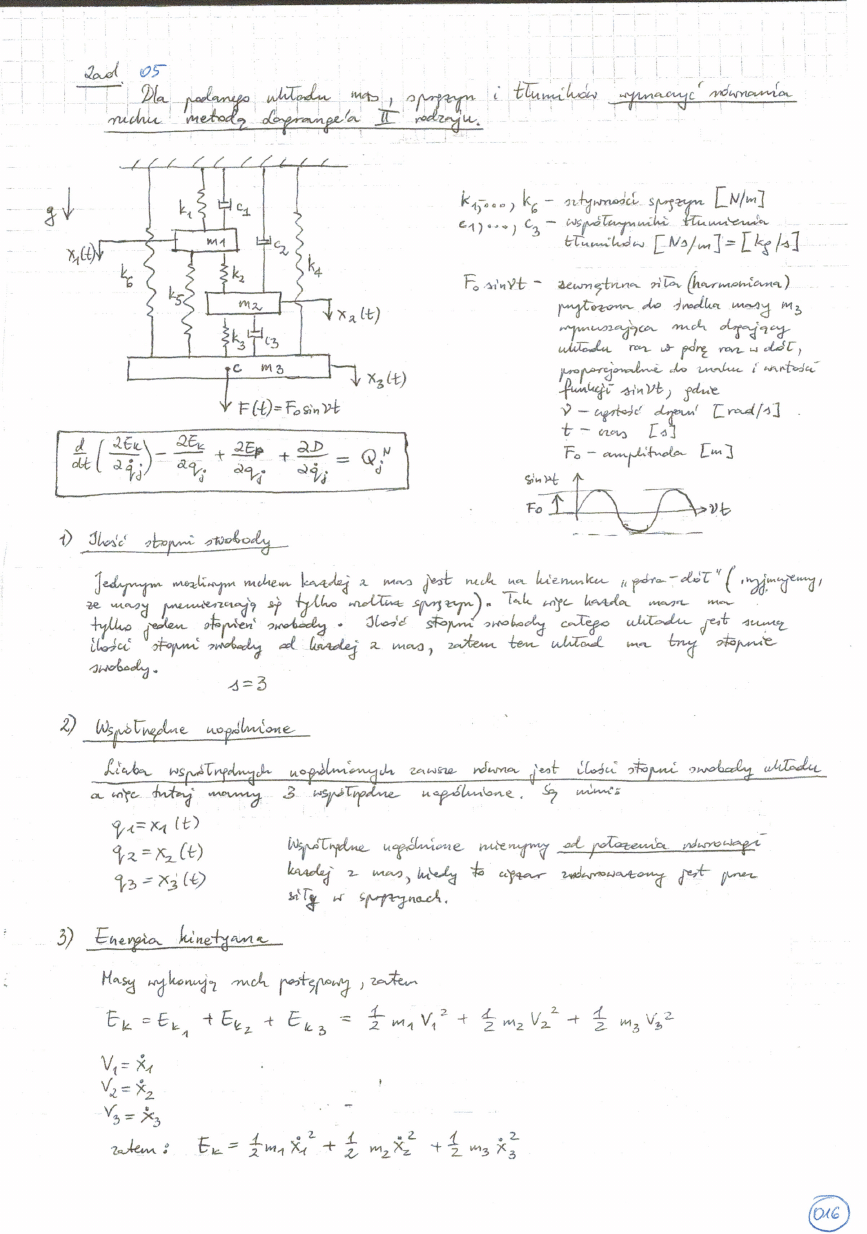 Zad. 05
Dla podanego układu mas, sprężyn i tłumików wyznaczyć równania
ruchu metodą Lagrange'a II rodzaju.
g
k1
c1
m1
x1(t)
k6
k5
k2
c2
k4
m2
x2(t)
k3
c3
C m3
x3(t)
F(t)=F₀sinνt
k1,..., k6 - sztywności sprężyn [N/m]
c1,..., c3 - współczynniki tłumienia
tłumików [Ns/m]=[kg/s]
F₀sinνt - zewnętrzna siła (harmoniczna)
przyłożona do środka masy m3
wymuszająca ruch drgający
układu raz w górę raz w dół,
proporcjonalnie do znaku i wartości
funkcji sinνt, gdzie
ν - częstość drgań [rad/s].
t - czas [s]
F₀ - amplituda [m]
sinνt
F₀
νt
d/dt (∂Ek/∂q̇j) - ∂Ek/∂qj + ∂Ep/∂qj + ∂D/∂q̇j = Qj^N
1) Ilość stopni swobody
Jedynym możliwym ruchem każdej z mas jest ruch na kierunku "góra-dół" (przyjmujemy,
że masy przemieszczają się tylko wzdłuż sprężyn). Tak więc każda masa ma
tylko jeden stopień swobody. Ilość stopni swobody całego układu jest sumą
ilości stopni swobody od każdej z mas, zatem ten układ ma trzy stopnie
swobody.
s=3
2) Współrzędne uogólnione
Liczba współrzędnych uogólnionych zawsze równa jest ilości stopni swobody układu
a więc tutaj mamy 3 współrzędne uogólnione. Są nimi:
q1=x1(t)
q2=x2(t)
q3=x3(t)
Współrzędne uogólnione mierzymy od położenia równowagi
każdej z mas, kiedy to ciężar zrównoważony jest przez
siły w sprężynach.
3) Energia kinetyczna
Masy wykonują ruch postępowy, zatem
Ek = Ek1 + Ek2 + Ek3 = 1/2 m1 V1² + 1/2 m2 V2² + 1/2 m3 V3²
V1=ẋ1
V2=ẋ2
V3=ẋ3
zatem: Ek = 1/2 m1 ẋ1² + 1/2 m2 ẋ2² + 1/2 m3 ẋ3²
016